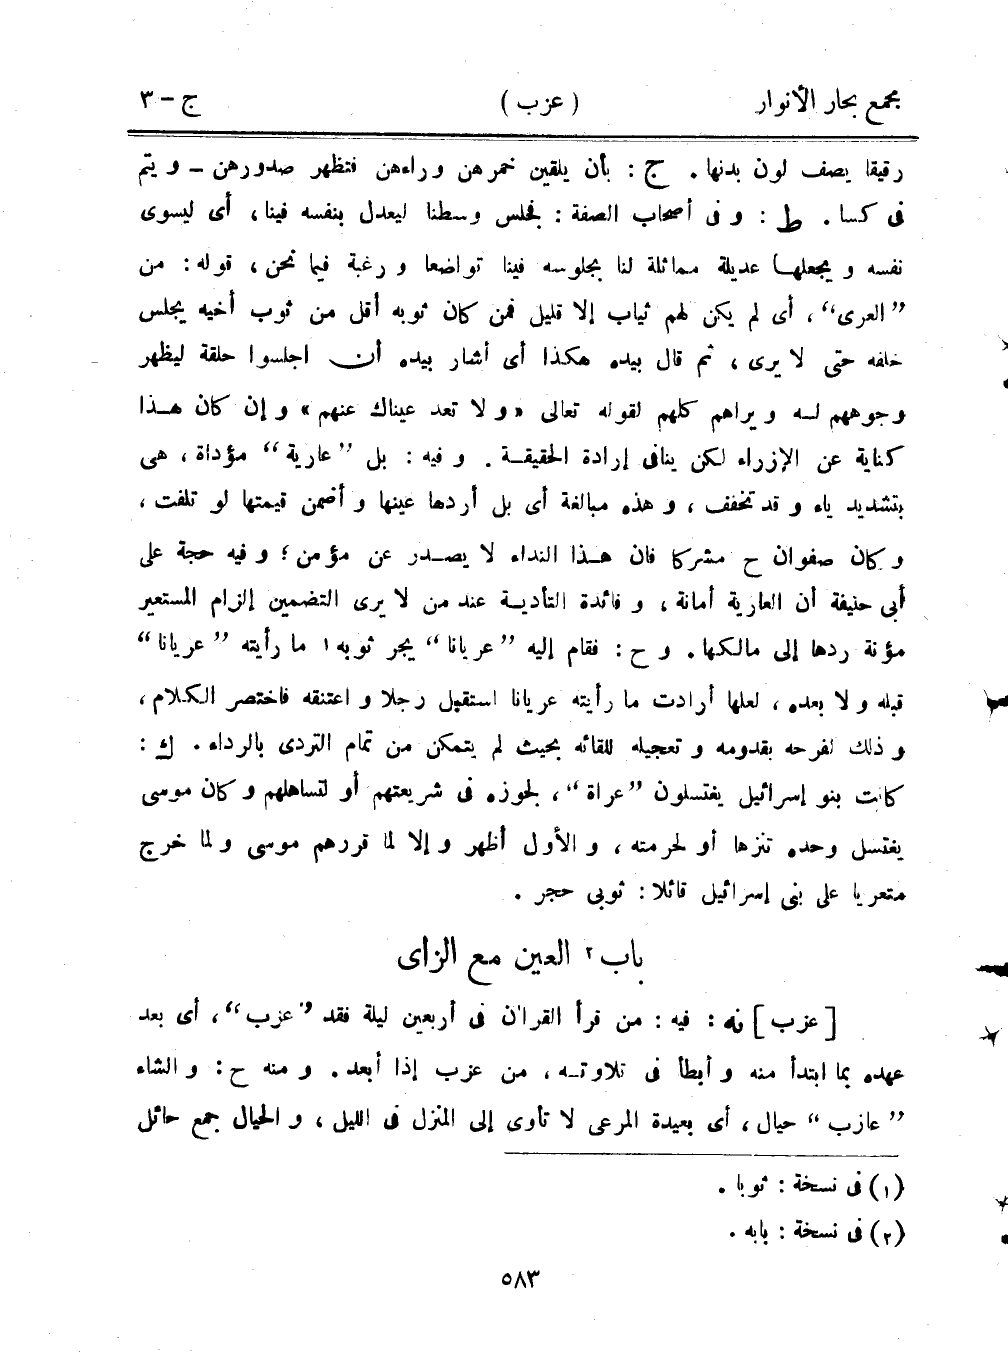 مجمع بحار الأنوار (عزب) ج - ٣
رقيقا يصف لون بدنها. ج: بأن يلقين خمرهن وراءهن فتظهر صدورهن - و يتم
فى كسا. ط: و فى أصحاب الصفة: فجلس وسطنا ليعدل بنفسه فينا، أى ليسوى
نفسه و يجعلها عديلة مماثلة لنا بجلوسه فينا تواضعا و رغبة فيما نحن، قوله: من
”العرى“، أى لم يكن لهم ثياب إلا قليل فمن كان ثوبه أقل من ثوب أخيه يجلس
خلفه حتى لا يرى، ثم قال بيده هكذا أى أشار بيده أن اجلسوا حلقة ليظهر
وجوههم له و يراهم كلهم لقوله تعالى «و لا تعد عيناك عنهم» و إن كان هذا
كناية عن الإزراء لكن ينافى إرادة الحقيقة. و فيه: بل ”عارية“ مؤداة، هى
بتشديد ياء و قد تخفف، و هذه مبالغة أى بل أردها عينها و أضمن قيمتها لو تلفت،
و كان صفوان ح مشركا فان هذا النداء لا يصدر عن مؤمن؛ و فيه حجة على
أبى حنيفة أن العارية أمانة، و فائدة التأدية عند من لا يرى التضمين إلزام المستعير
مؤنة ردها إلى مالكها. و ح: فقام إليه ”عريانا“ يجر ثوبه ١ ما رأيته ”عريانا“
قبله و لا بعده، لعلها أرادت ما رأيته عريانا استقبل رجلا و اعتنقه فاختصر الكلام،
و ذلك لفرحه بقدومه و تعجيله للقائه بحيث لم يتمكن من تمام التردى بالرداء. ك:
كانت بنو إسرائيل يغتسلون ”عراة“، لجوزه فى شريعتهم أو لتساهلهم و كان موسى
يغتسل وحده تنزها أو لحرمته، و الأول أظهر و إلا لما قررهم موسى و لما خرج
متعريا على بنى إسرائيل قائلا: ثوبى حجر.
باب ٢ العين مع الزاى
[عزب] نه: فيه: من قرأ القرآن فى أربعين ليلة فقد ”عزب“، أى بعد
عهده بما ابتدأ منه و أبطأ فى تلاوته، من عزب إذا أبعد. و منه ح: و الشاء
”عازب“ حيال، أى بعيدة المرعى لا تأوى إلى المنزل فى الليل، و الحيال جمع حائل
(١) فى نسخة: ثوبا.
(٢) فى نسخة: بابه.
٥٨٣